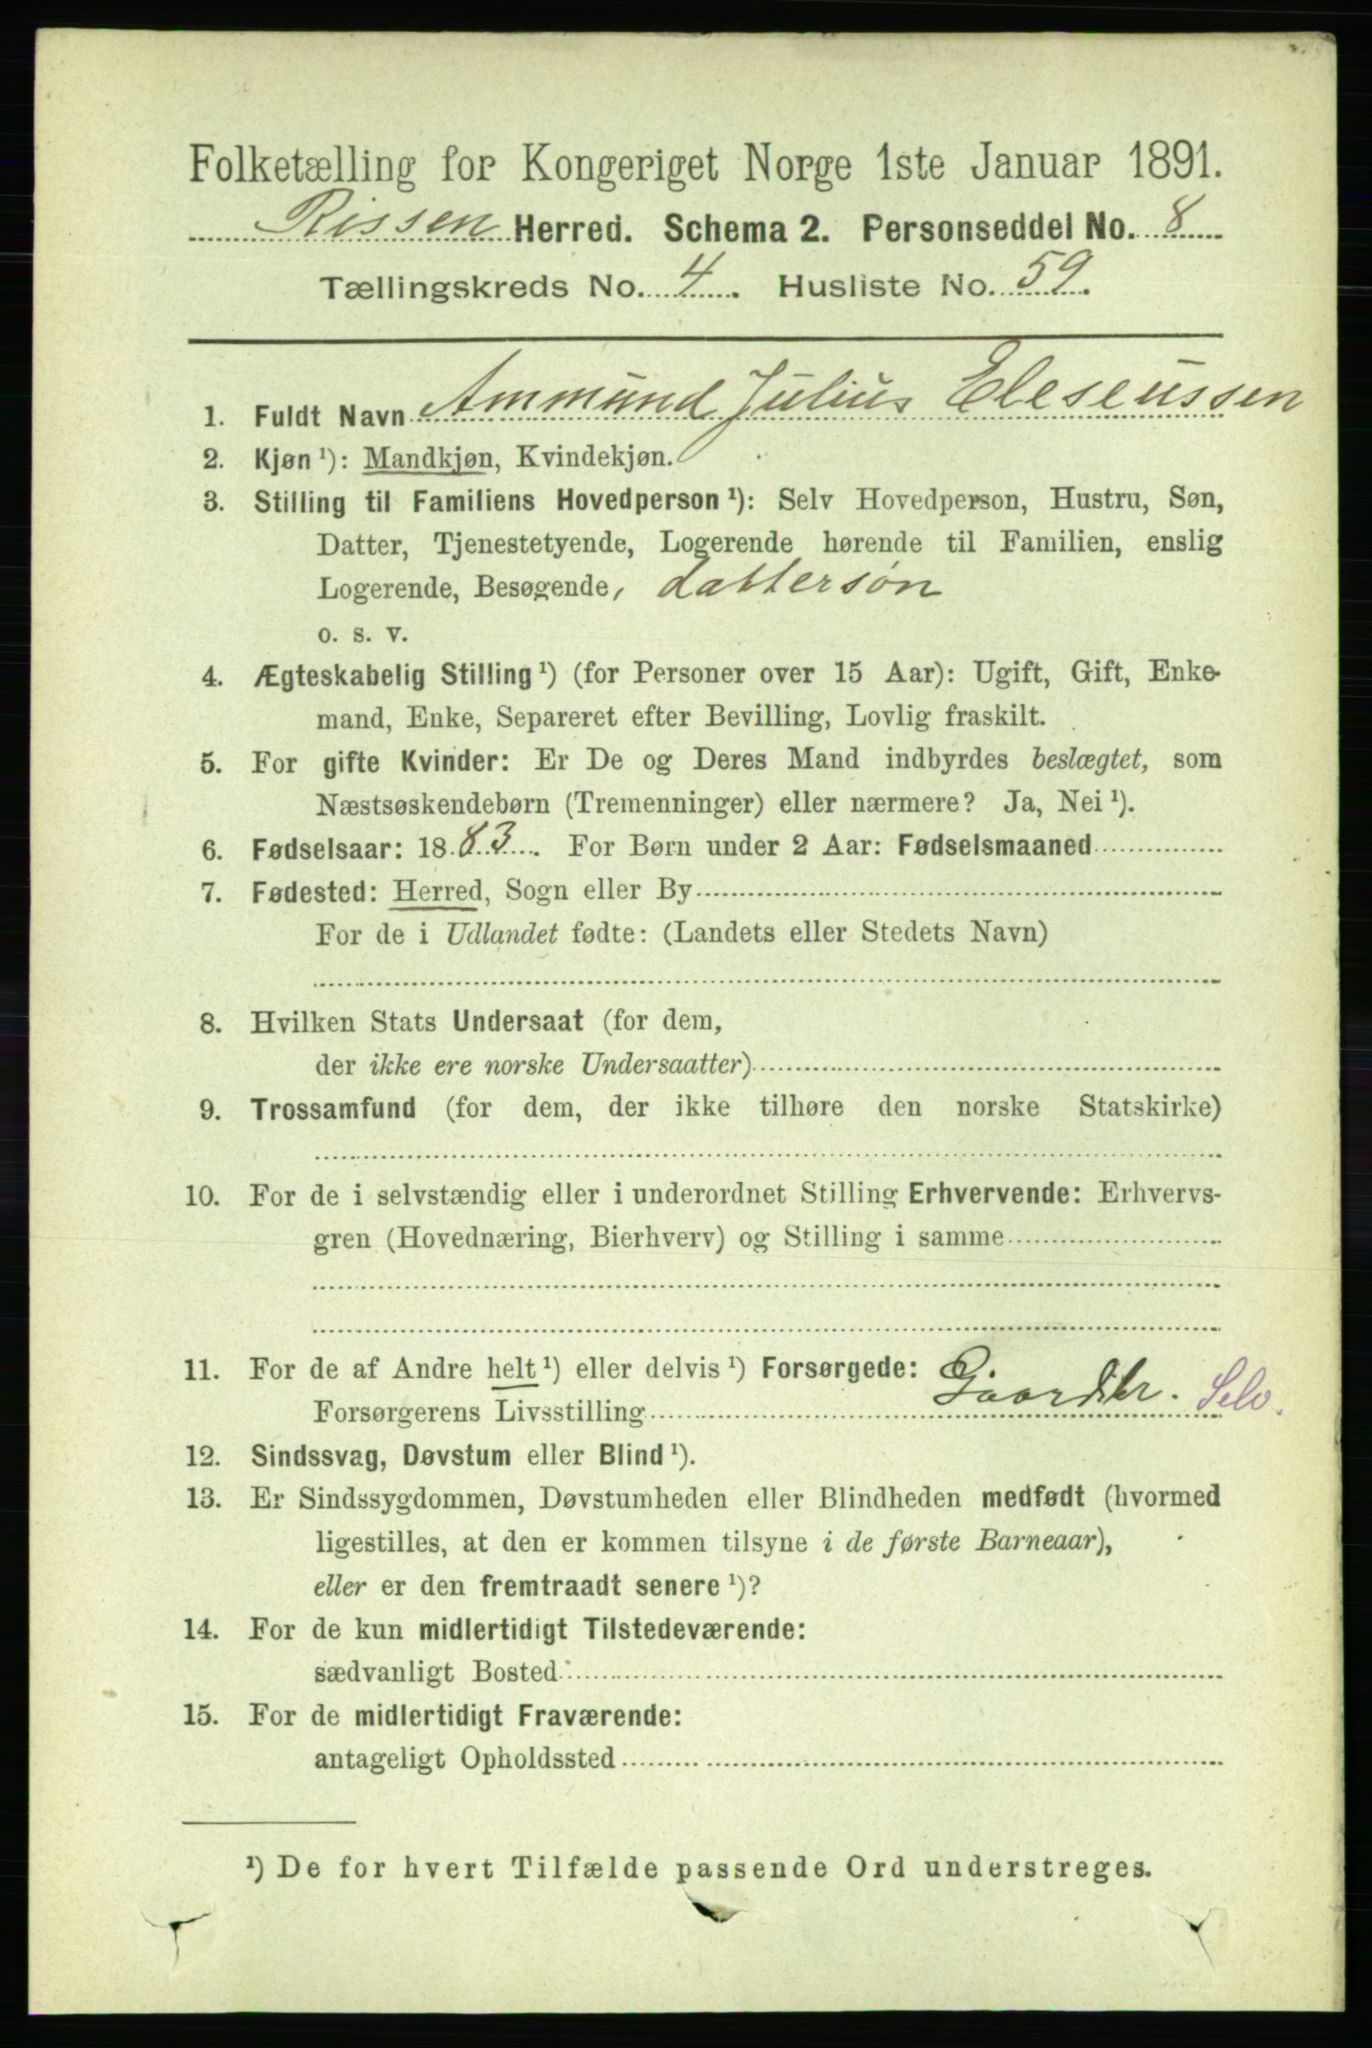 Folketælling for Kongeriget Norge 1ste Januar 1891.
Rissen Herred. Schema 2. Personseddel No. 8
Tællingskreds No. 4. Husliste No. 59.
1. Fuldt Navn Ammund Julius Eleseussen
2. Kjøn ¹): Mandkjøn, Kvindekjøn.
3. Stilling til Familiens Hovedperson ¹): Selv Hovedperson, Hustru, Søn,
Datter, Tjenestetyende, Logerende hørende til Familien, enslig
Logerende, Besøgende, dattersøn
o. s. v.
4. Ægteskabelig Stilling ¹) (for Personer over 15 Aar): Ugift, Gift, Enke-
mand, Enke, Separeret efter Bevilling, Lovlig fraskilt.
5. For gifte Kvinder: Er De og Deres Mand indbyrdes beslægtet, som
Næstsøskendebørn (Tremenninger) eller nærmere? Ja, Nei ¹).
6. Fødselsaar: 1883. For Børn under 2 Aar: Fødselsmaaned
7. Fødested: Herred, Sogn eller By
For de i Udlandet fødte: (Landets eller Stedets Navn)
8. Hvilken Stats Undersaat (for dem,
der ikke ere norske Undersaatter)
9. Trossamfund (for dem, der ikke tilhøre den norske Statskirke)
10. For de i selvstændig eller i underordnet Stilling Erhvervende: Erhvervs-
gren (Hovednæring, Bierhverv) og Stilling i samme
11. For de af Andre helt ¹) eller delvis ¹) Forsørgede:
Forsørgerens Livsstilling Gaardbr. Selv.
12. Sindssvag, Døvstum eller Blind ¹).
13. Er Sindssygdommen, Døvstumheden eller Blindheden medfødt (hvormed
ligestilles, at den er kommen tilsyne i de første Barneaar),
eller er den fremtraadt senere ¹)?
14. For de kun midlertidigt Tilstedeværende:
sædvanligt Bosted
15. For de midlertidigt Fraværende:
antageligt Opholdssted
¹) De for hvert Tilfælde passende Ord understreges.